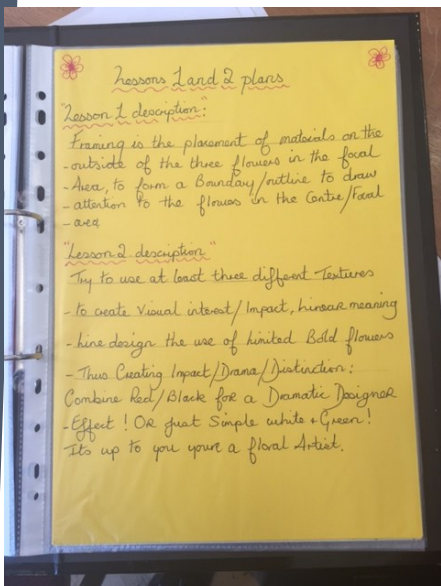 Lessons 1 and 2 plans
"Lesson 1 description:"
Framing is the placement of materials on the
- outside of the three flowers in the focal
- Area, to form a Boundary/outline to draw
- attention to the flowers in the Centre/Focal
- area
"Lesson 2 description"
Try to use at least three different Textures
- to create Visual interest/Impact, Linear meaning
- Line design the use of Limited Bold flowers
- Thus Creating Impact/Drama/Distinction:
Combine Red/Black for a Dramatic Designer
- Effect! OR Just Simple white + Green!
Its up to you youre a floral Artist.